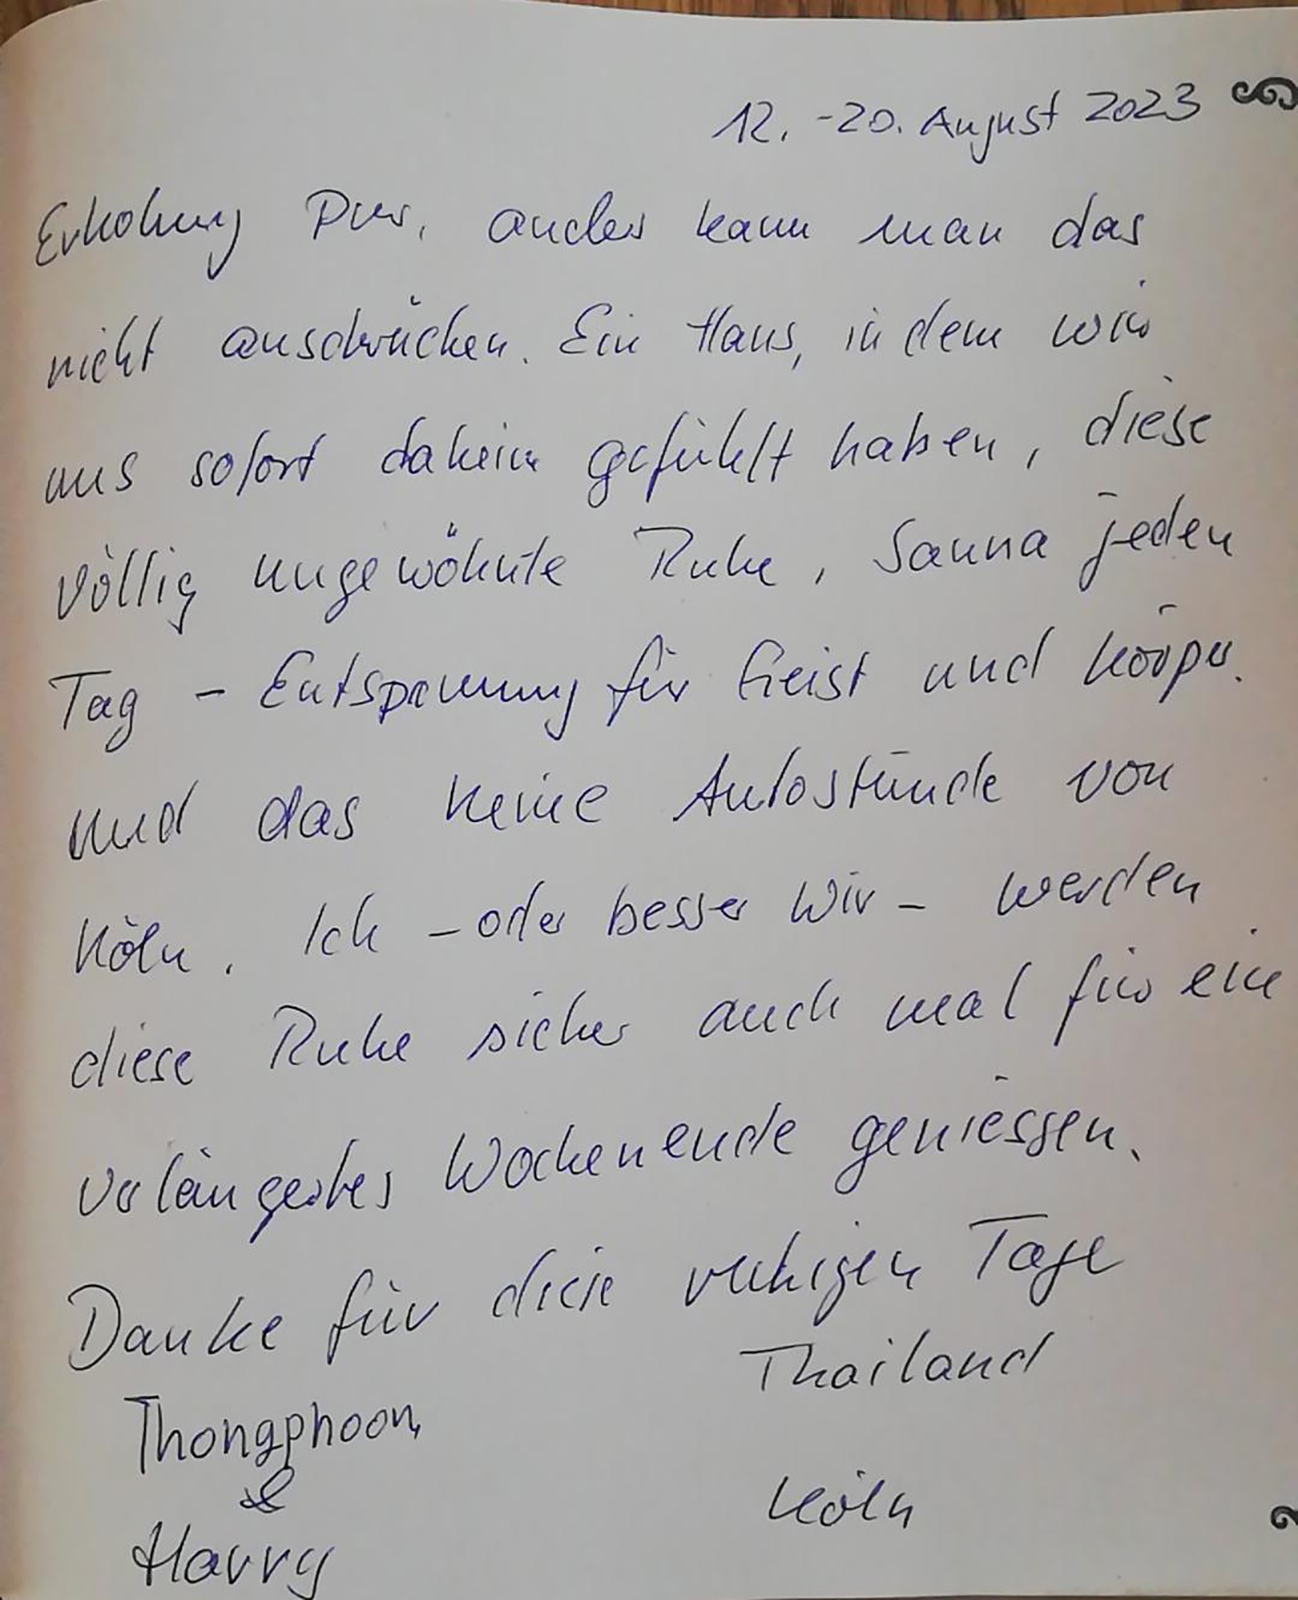 12. - 20. August 2023
Erholung Pur, anders kann man das
nicht ausdrücken. Ein Haus, in dem wir
uns sofort daheim gefühlt haben, diese
völlig ungewöhnte Ruhe, Sauna jeden
Tag - Entspannung für Geist und Körper.
Und das keine Autostunde von
Köln. Ich - oder besser Wir - werden
diese Ruhe sicher auch mal für ein
verlängertes Wochenende geniessen.
Danke für diese ruhigen Tage
Thongphoon Thailand
&
Harry Köln